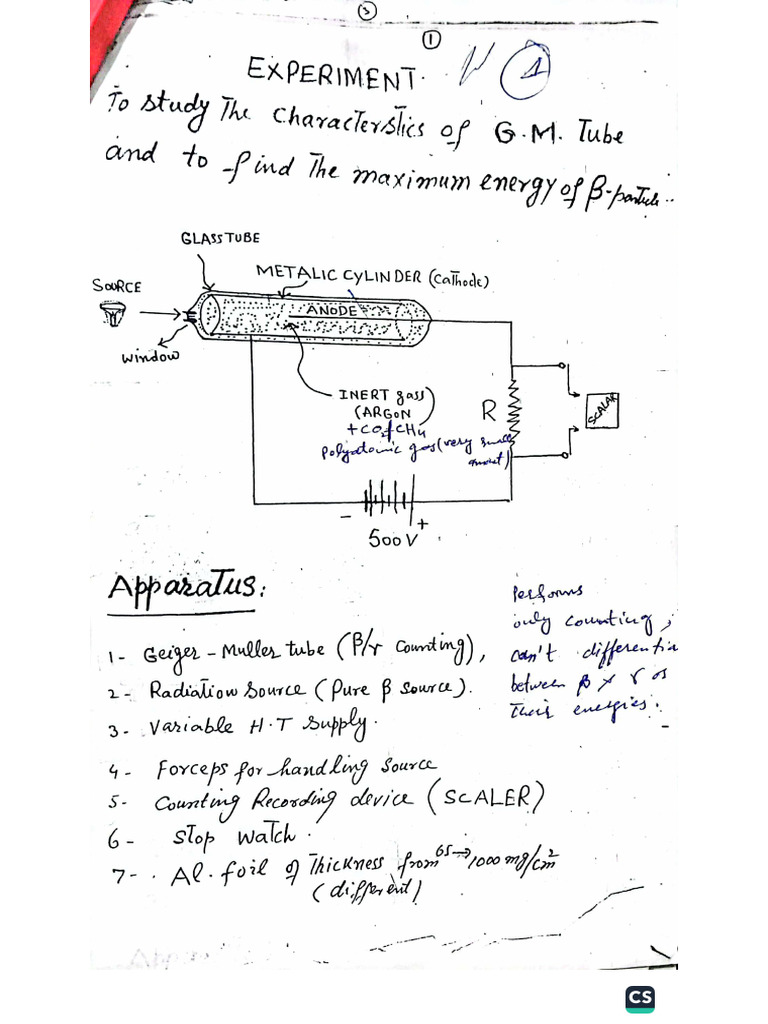 3
1
EXPERIMENT.
1
To study The characteristics of G.M. Tube
and to find The maximum energy of β-particle..
GLASS TUBE
METALIC CYLINDER (Cathode)
SOURCE
ANODE
window
INERT gass)
(ARGON
+CO2/CH4
Polyatomic gas (very small
amount)
R
SCALAR
- +
500V
Apparatus:
Performs
only counting,
can't differentia
between β & γ or
Their energies.
1- Geiger-Muller tube (β/γ Counting),
2- Radiation Source (Pure β Source).
3- Variable H.T Supply.
4- Forceps for handling source
5- Counting Recording device (SCALER)
6- Stop watch.
7- . Al. foil of Thickness from 65→1000 mg/cm²
(different)
CS